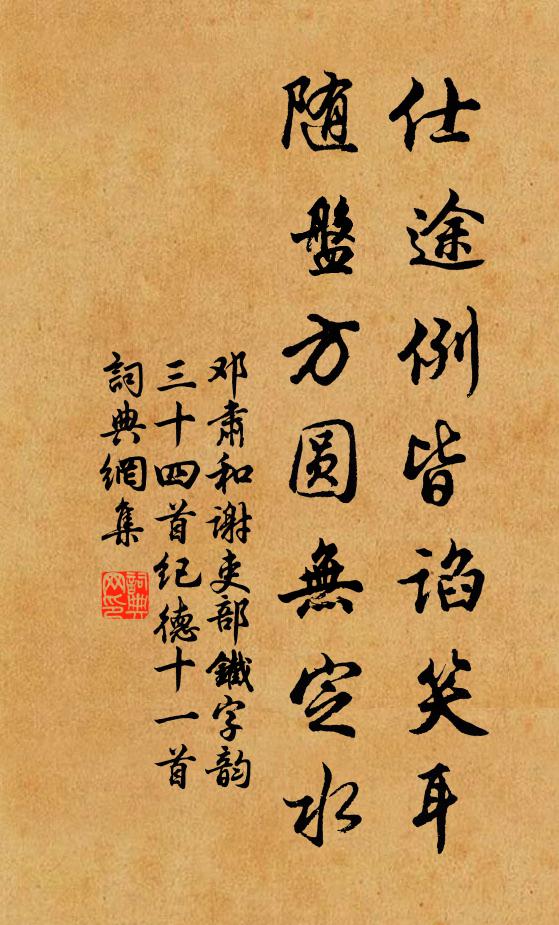 仕途例皆谄笑耳
随盤方圆無定水
邓肃和谢吏部鐵字韵
三十四首纪德十一首
詞典網集
詞典网印